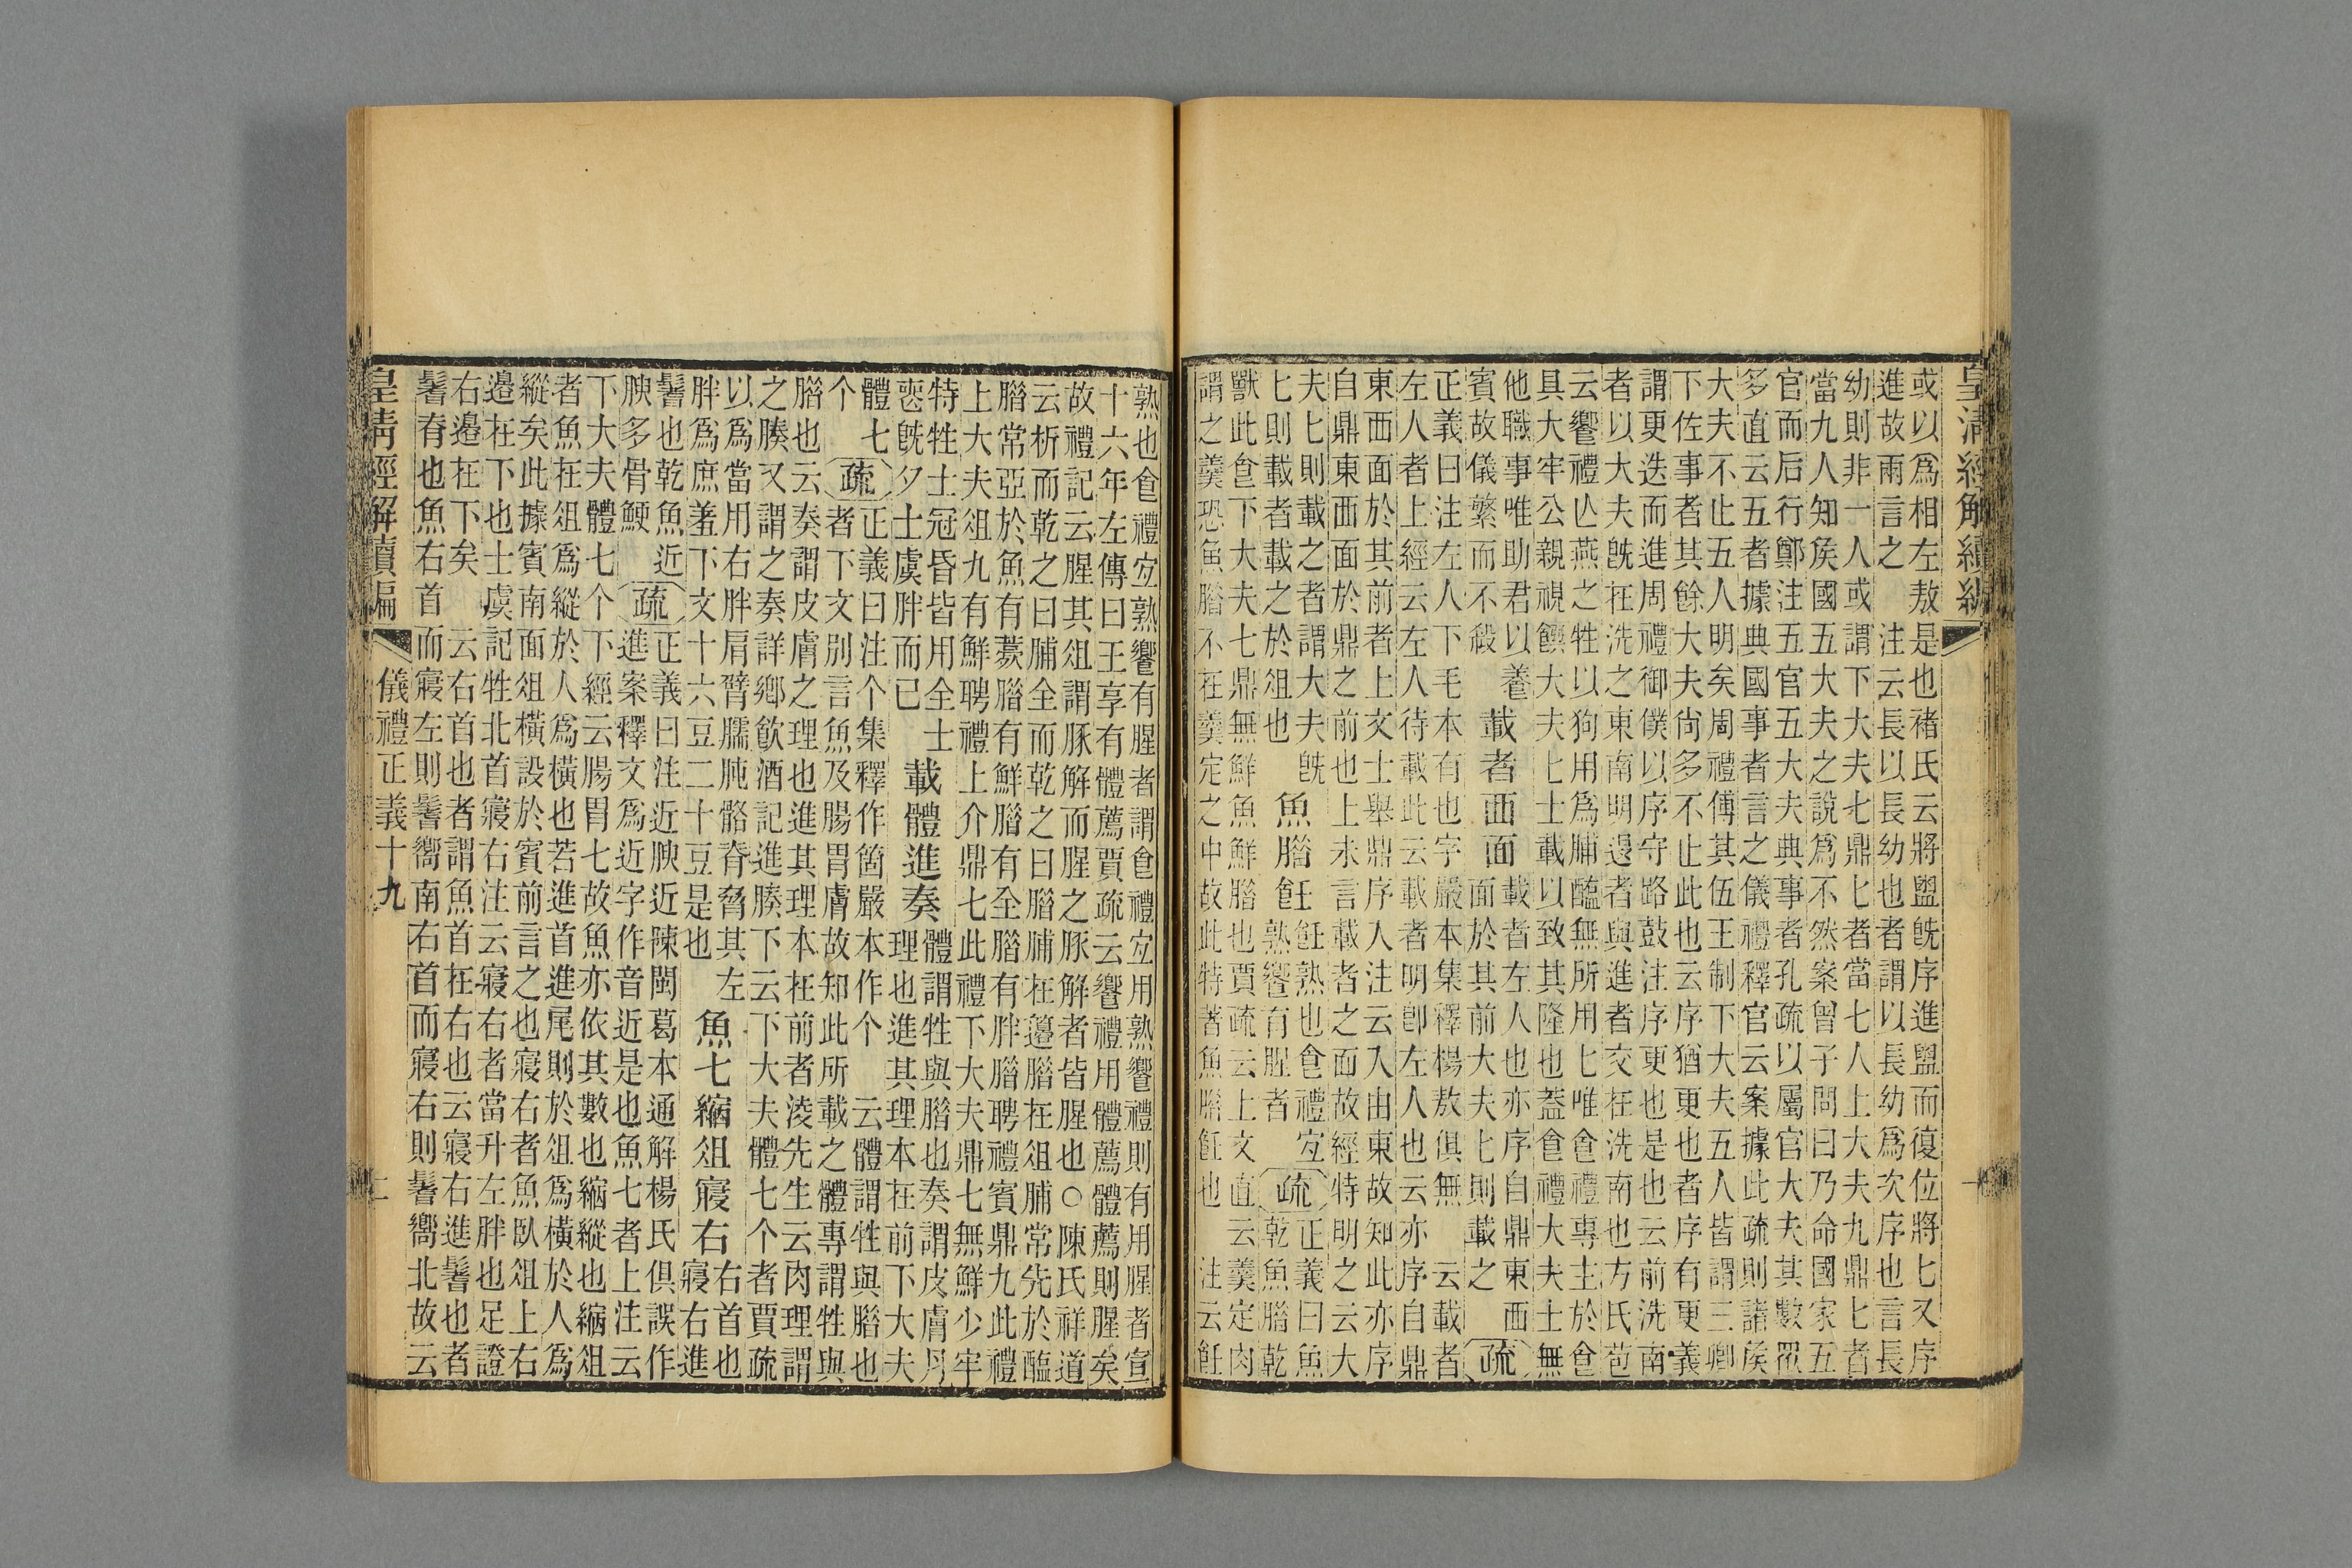 皇清經解續編
或以爲相左敖是也褚氏云將盥旣序進盥而復位將匕又序
進故兩言之　注云長以長幼也者謂以長幼爲次序也言長
幼則非一人或謂下大夫七鼎匕者當七人上大夫九鼎匕者
當九人知矦國五大夫之說爲不然案曾子問曰乃命國家五
官而后行鄭注五官五大夫典事者孔疏以屬官大夫其數眾
多直云五者據典國事者言之儀禮釋官云案據此疏則諸矦
大夫不止五人明矣周禮傅其伍王制下大夫五人皆謂三卿
下佐事者其餘大夫尙多不止此也云序猶更也者序有更義
謂更迭而進周禮御僕以序守路鼓注序更也是也云前洗南
者以大夫旣在洗之東南明邊者與進者交在洗南也方氏苞
云饗禮亾燕之牲以狗用爲脯醢無所用匕唯食禮專主於食
具大牢公親視饌大夫匕士載以致其隆也蓋食禮大夫士無
他職事唯助君以養
賓故儀繁而不殺
載者西面
載者左人也亦序自鼎東西
面於其前大夫匕則載之
疏
正義曰注左人下毛本有也字嚴本集釋楊敖俱無　云載者
左人者上經云左人待載此云載者明卽左人也云亦序自鼎
東西面於其前者上文士舉鼎序入注云入由東故知此亦序
自鼎東西面於鼎之前也上未言載者之面故經特明之云大
夫匕則載之者謂大夫旣
匕則載者載之於俎也
魚腊飪
飪熟也食禮宜
熟饗有腥者
疏
正義曰魚
乾魚腊乾
獸此食下大夫七鼎無鮮魚鮮腊也賈疏云上文直云羹定肉
謂之羹恐魚腊不在羹定之中故此特著魚腊飪也　注云飪
熟也食禮宜熟饗有腥者謂食禮宜用熟饗禮則有用腥者宣
十六年左傳曰王享有體薦賈疏云饗禮用體薦體薦則腥矣
故禮記云腥其俎謂豚解而腥之豚解者皆腥也○陳氏祥道
云析而乾之曰脯全而乾之曰腊脯在籩腊在俎脯常先於醢
腊常亞於魚有藁腊有鮮腊有全腊有胖腊聘禮賓鼎九此禮
上大夫俎九有鮮聘禮上介鼎七此禮下大夫鼎七無鮮少牢
特牲士冠昏皆用全士
喪旣夕士虞胖而已
載體進奏
體謂牲與腊也奏謂皮膚之
理也進其理本在前下大夫
體七
个
疏
正義曰注个集釋作箇嚴本作个　云體謂牲與腊也
者下文別言魚及腸胃膚故知此所載之體專謂牲與
腊也云奏謂皮膚之理也進其理本在前者淩先生云肉理謂
之腠又謂之奏詳鄉飲酒記進腠下云下大夫體七个者賈疏
以爲當用右胖肩臂臑肫骼脊脅其左
胖爲庶羞下文十六豆二十豆是也
魚七縮俎寢右
右首也
寢右進
鬐也乾魚近
腴多骨鯁
疏
正義曰注近腴近陳閩葛本通解楊氏俱誤作
進案釋文爲近字作音近是也魚七者上注云
下大夫體七个下經云腸胃七故魚亦依其數也縮縱也縮俎
者魚在俎爲縱於人爲橫也若進首進尾則於俎爲橫於人爲
縱矣此據賓南面俎橫設於賓前言之也寢右者魚臥俎上右
邊在下也士虞記牲北首寢右注云寢右者當升左胖也足證
右邊在下矣　云右首也者謂魚首在右也云寢右進鬐也者
鬐脊也魚右首而寢左則鬐嚮南右首而寢右則鬐嚮北故云
皇清經解續編　儀禮正義十九